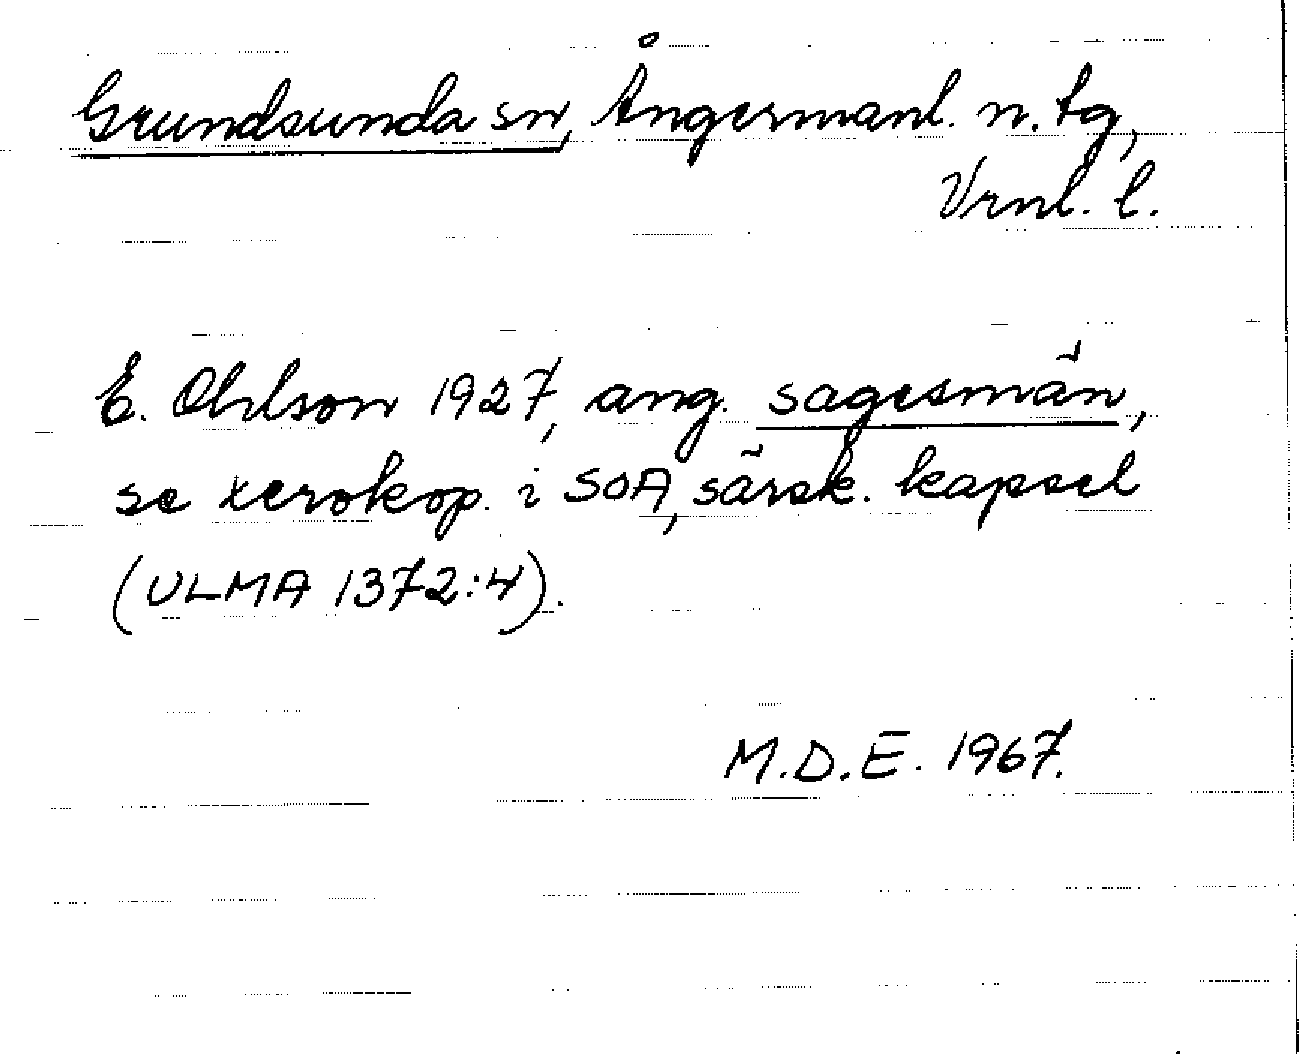 Grundsunda sn, Ångermanl. n. tg,
Vrnl. l.
E. Ohlson 1927, ang. sagesmän,
se xerokop. i SOA, särsk. kapsel
(ULMA 1372:4).
M.D.E. 1967.